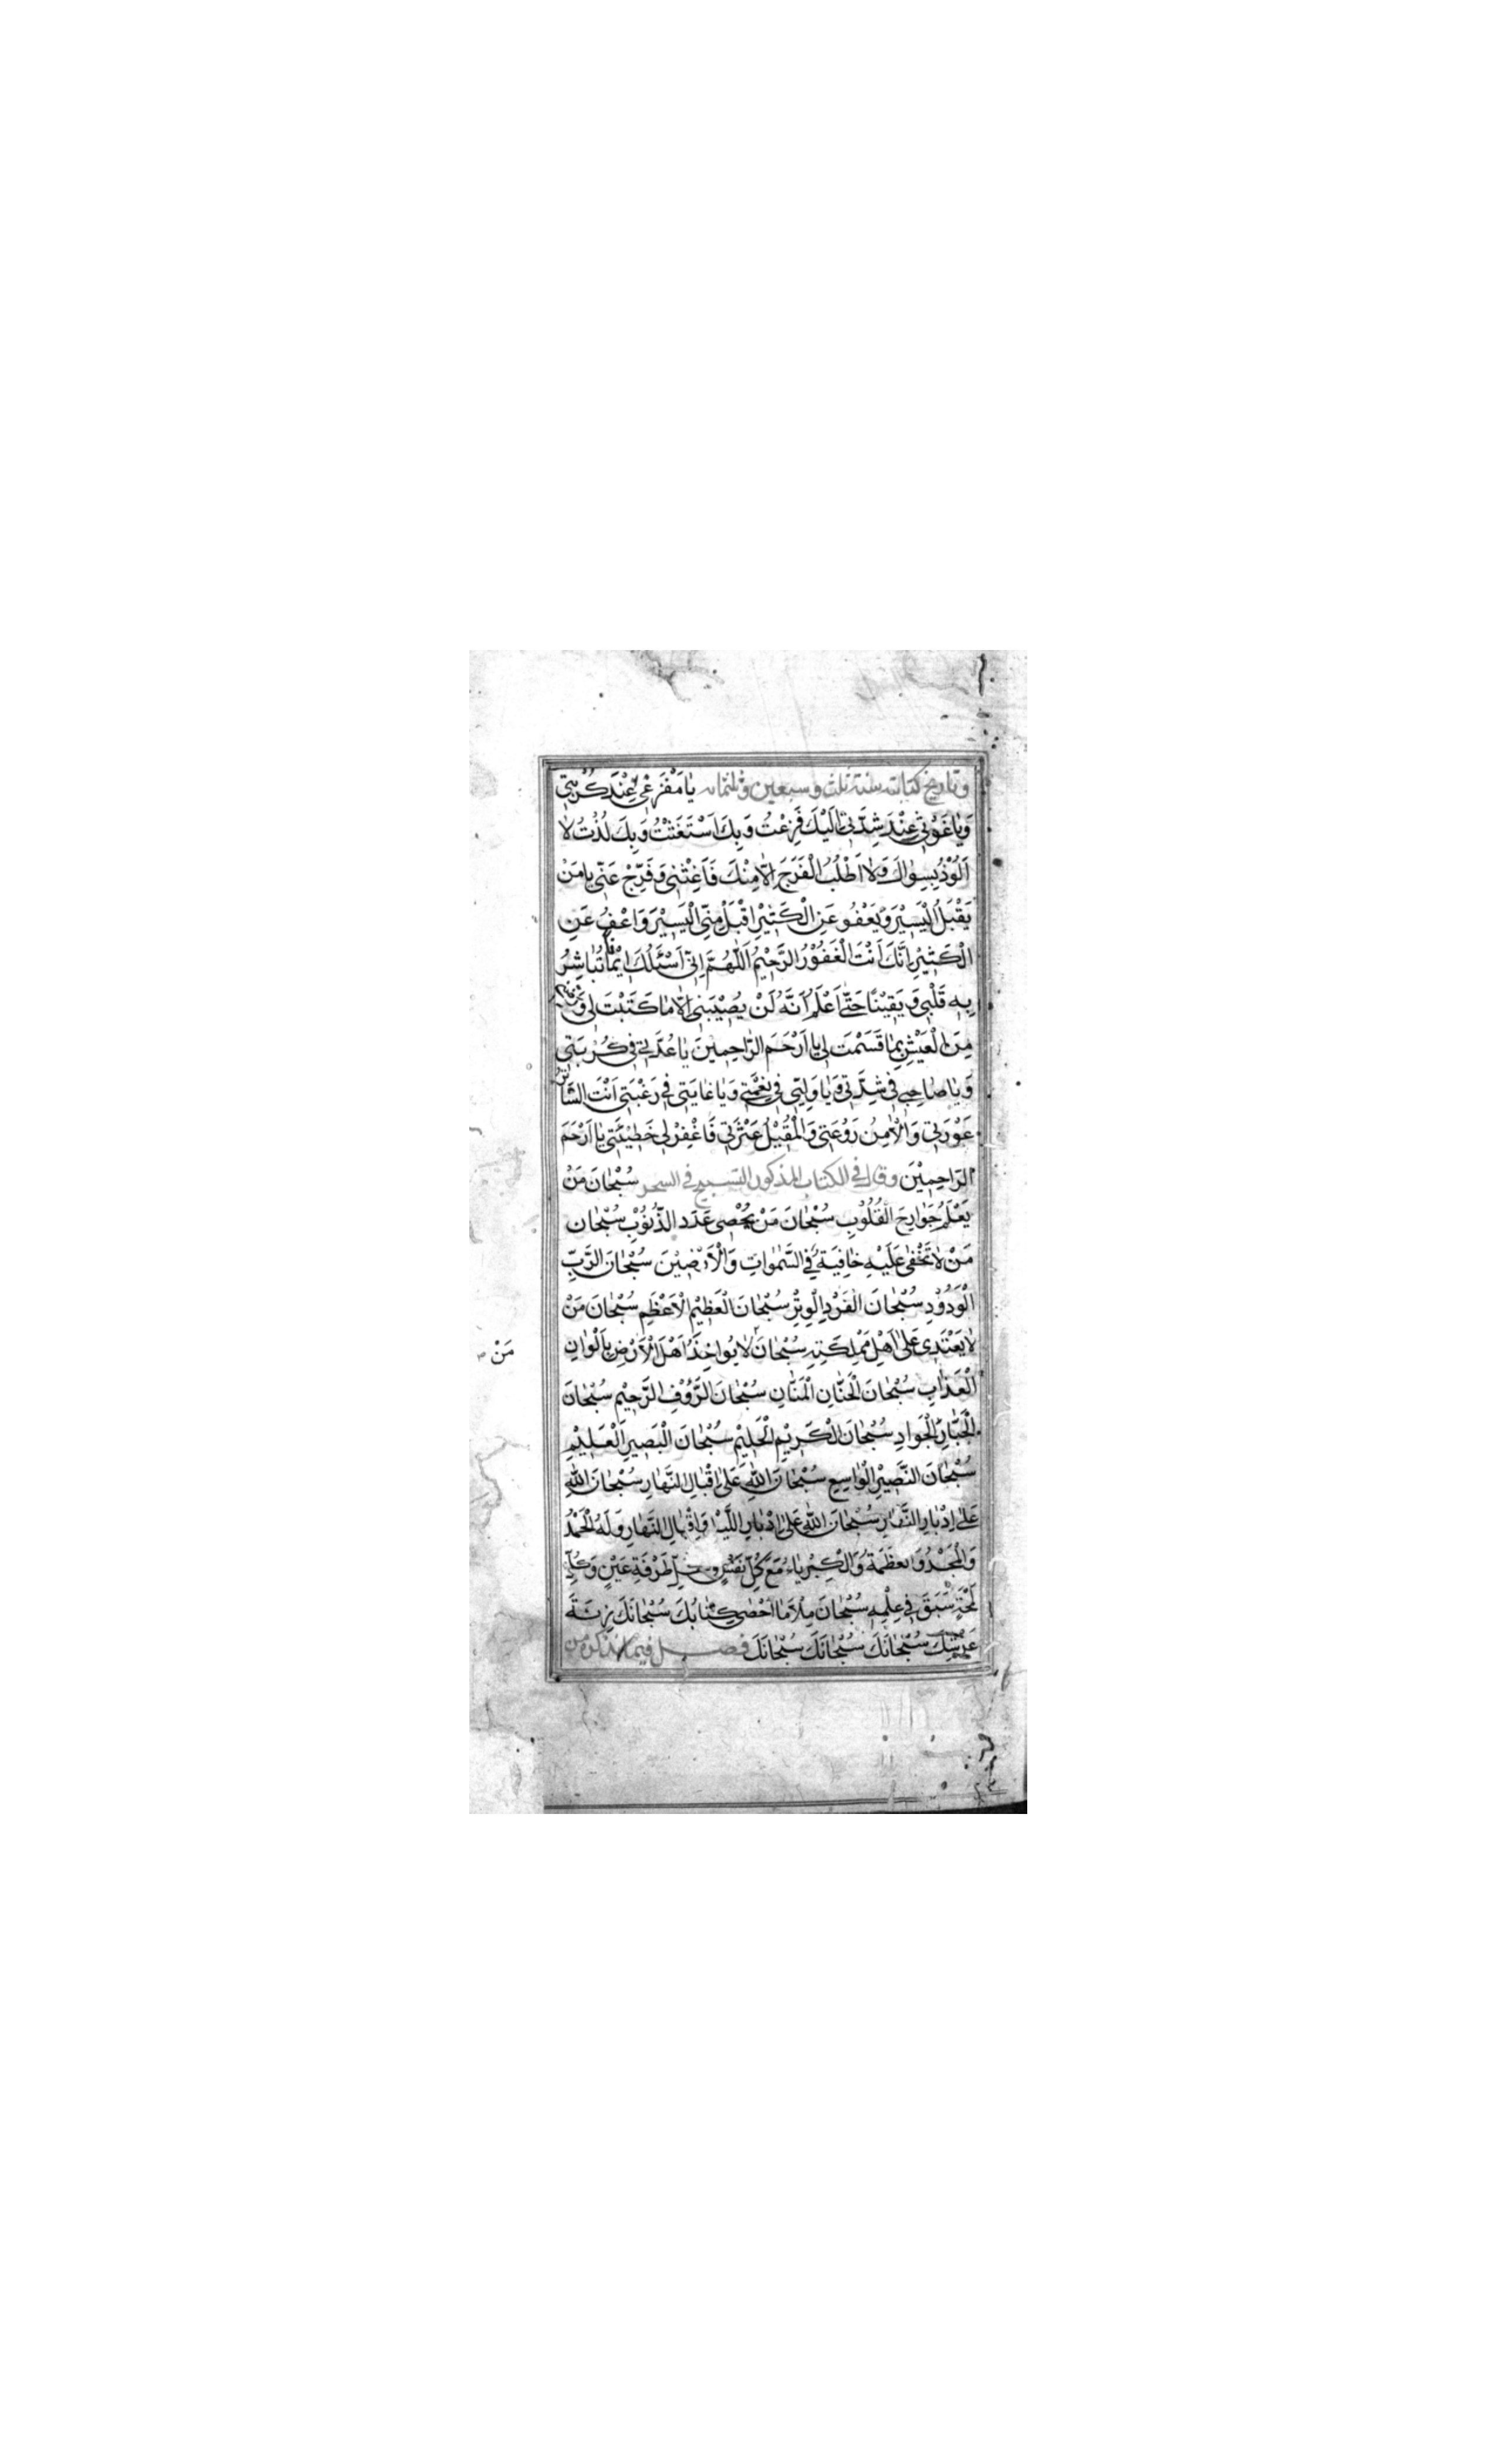 وتاريخ كتابته سنة ثلث وسبعين وثلثمائه يَا مَفْزَعِي عِنْدَ كُرْبَتِي
وَيَا غَوْثِي عِنْدَ شِدَّتِي اِلَيْكَ فَزِعْتُ وَبِكَ اَسْتَغَثْتُ وَبِكَ لُذْتُ لَا
اَلُوْذُ بِسِوَاكَ وَلَا اَطْلُبُ الْفَرَجَ اِلَّا مِنْكَ فَاَغِثْنِي وَفَرِّجْ عَنِّي يَا مَنْ
يَقْبَلُ الْيَسِيْرَ وَيَعْفُو عَنِ الْكَثِيْرِ اِقْبَلْ مِنِّي الْيَسِيْرَ وَاعْفُ عَنِ
الْكَثِيْرِ اِنَّكَ اَنْتَ الْغَفُوْرُ الرَّحِيْمُ اَللّٰهُمَّ اِنِّي اَسْئَلُكَ اِيْمَانًا تُبَاشِرُ
بِهِ قَلْبِي وَيَقِيْنًا حَتّٰى اَعْلَمَ اَنَّهُ لَنْ يُصِيْبَنِي اِلَّا مَا كَتَبْتَ لِي وَرَضِّنِي
مِنَ الْعَيْشِ بِمَا قَسَمْتَ لِي يَا اَرْحَمَ الرَّاحِمِيْنَ يَا عُدَّتِي فِي كُرْبَتِي
وَيَا صَاحِبِي فِي شِدَّتِي وَيَا وَلِيِّي فِي نِعْمَتِي وَيَا غَايَتِي فِي رَغْبَتِي اَنْتَ السَّاتِرُ
عَوْرَتِي وَالْاٰمِنُ رَوْعَتِي وَالْمُقِيْلُ عَثْرَتِي فَاغْفِرْ لِي خَطِيْئَتِي يَا اَرْحَمَ
الرَّاحِمِيْنَ وقال في الكتاب المذكور التسبيح في السحر سُبْحَانَ مَنْ
يَعْلَمُ جَوَارِحَ الْقُلُوْبِ سُبْحَانَ مَنْ يُحْصِي عَدَدَ الذُّنُوْبِ سُبْحَانَ
مَنْ لَا تَخْفٰى عَلَيْهِ خَافِيَةٌ فِي السَّمٰوَاتِ وَالْاَرَضِيْنَ سُبْحَانَ الرَّبِّ
الْوَدُوْدِ سُبْحَانَ الْفَرْدِ الْوِتْرِ سُبْحَانَ الْعَظِيْمِ الْاَعْظَمِ سُبْحَانَ مَنْ
لَا يَعْتَدِي عَلٰى اَهْلِ مَمْلِكَتِهِ سُبْحَانَ لَا يُوَاخِذُ اَهْلَ الْاَرْضِ بِاَلْوَانِ
مَنْ
الْعَذَابِ سُبْحَانَ الْحَنَّانِ الْمَنَّانِ سُبْحَانَ الرَّؤُفِ الرَّحِيْمِ سُبْحَانَ
الْجَبَّارِ الْجَوَادِ سُبْحَانَ الْكَرِيْمِ الْحَلِيْمِ سُبْحَانَ الْبَصِيرِ الْعَلِيْمِ
سُبْحَانَ النَّصِيْرِ الْوَاسِعِ سُبْحَانَ اللّٰهِ عَلٰى اِقْبَالِ النَّهَارِ سُبْحَانَ اللّٰهِ
عَلٰى اِدْبَارِ النَّهَارِ سُبْحَانَ اللّٰهِ عَلٰى اِدْبَارِ اللَّيْلِ وَاِقْبَالِ النَّهَارِ وَلَهُ الْحَمْدُ
وَالْمَجْدُ وَالْعَظَمَةُ وَالْكِبْرِيَاءُ مَعَ كُلِّ نَفَسٍ وَكُلِّ طَرْفَةِ عَيْنٍ وَكُلِّ
لَمْحَةٍ سَبَقَ فِي عِلْمِهِ سُبْحَانَ مِلْاَ مَا اَحْصٰى كِتَابُكَ سُبْحَانَكَ زِنَةَ
عَرْشِكَ سُبْحَانَكَ سُبْحَانَكَ سُبْحَانَكَ فصل فيما نذكره من